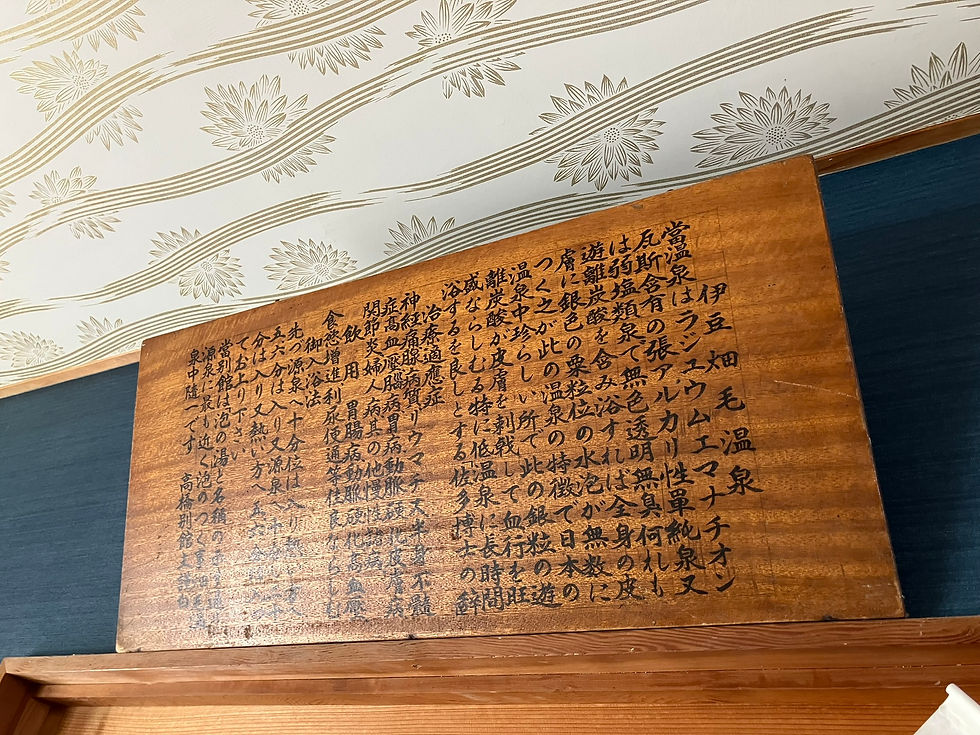 伊豆畑毛温泉
當温泉はラジュウムエマナチオン
瓦斯含有の張アルカリ性單純泉又
は弱塩類泉で無色透明無臭何れも
遊離炭酸を含み浴すれば全身の皮
膚に銀色の粟粒位の水泡が無数に
つく之が此の温泉の特徴で日本の
温泉中珍らしい所で此の銀粒の遊
離炭酸が皮膚を刺戟して血行を旺
盛ならしむる特に低温泉に長時間
浴するを良しとする佐多博士の辭
治療適應症
神経痛腺病質リウマチス半身不髄
症高血壓腸病胃病動脈硬化皮膚病
関節炎婦人病其の他慢性諸病
飲用 胃腸病動脈硬化高血壓
食慾増進利尿便通等佳良ならしむ
御入浴法
先づ源泉へ十分位は入り
五六分は入り又源泉へ
分は入り又熱い方へ五六分
てお上り下さい
當別館は泡の湯と名稱の
源泉に最も近く泡のつく事
泉中随一です 高橋別館主謹白